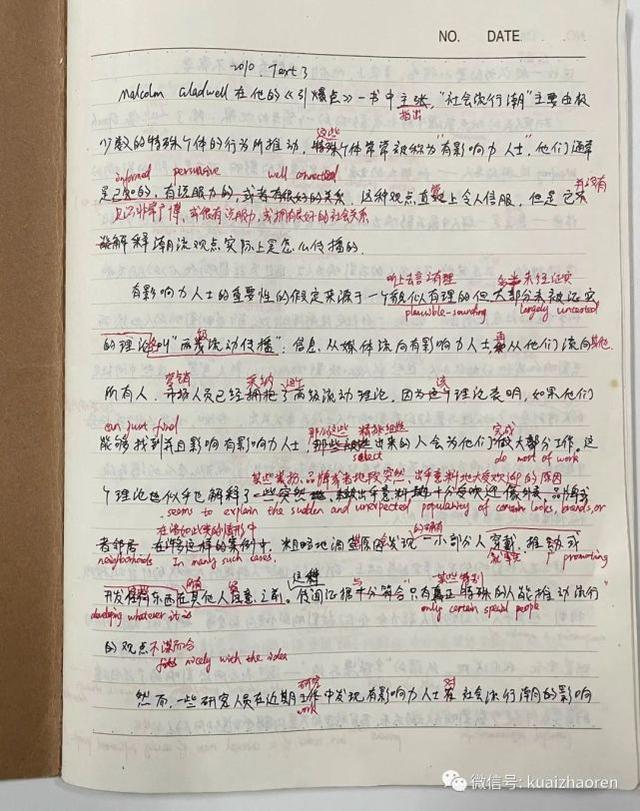 NO. DATE
2010. Text 3
Malcolm Gladwell 在他的《引爆点》一书中主张，"社会流行潮"主要由极
指出
少数的特殊个体的行为所推动，特殊个体常常被称为"有影响力人士"，他们通常
这些
informed persuasive well connected
是已知的，有说服力的，或者有很好的关系，这种观点直觉上令人信服，但是它并没有
见识非常广博，或很有说服力，或拥有很好的社会关系
解释潮流观点实际上是怎么传播的．
听上去言之有理 未经证实
有影响力人士的重要性的假定来源于一个貌似有理的但大部分未被证实
plausible-sounding largely untested
的理论叫"两级流动传播"：信息，从媒体流向有影响力人士，再从他们流向其他
营销 采纳 这个 该
所有人，市场人员已经拥抱了两级流动理论，因为这个理论表明，如果他们
can just find 那么这些 精挑细选 完成
能够找到并且影响有影响力人士，那些被选出来的人会为他们做大部分工作。这
select do most of work
某些装扮、品牌或者地段突然、出乎意料地大受欢迎的原因
个理论也似乎也解释了一些突然地，出乎意料地十分受欢迎 品牌或
seems to explain the sudden and unexpected popularity of certain looks, brands, or
在诸如此类的情形中 的确有
者邻居．在许多这样的案例中，粗略地调查原因发现一小部分人穿戴，推动或
neighborhoods In many such cases, promoting
开发任何东西在其他人注意之前。这种传闻证据十分符合"只有真正特殊的人能推动流行"
所有 某些特别
developing whatever it is only certain special people
的观点不谋而合
fits nicely with the idea
研究 对
然而，一些研究人员在近期工作中发现有影响力人士在社会流行潮的影响
work
微信号: kuaizhaoren